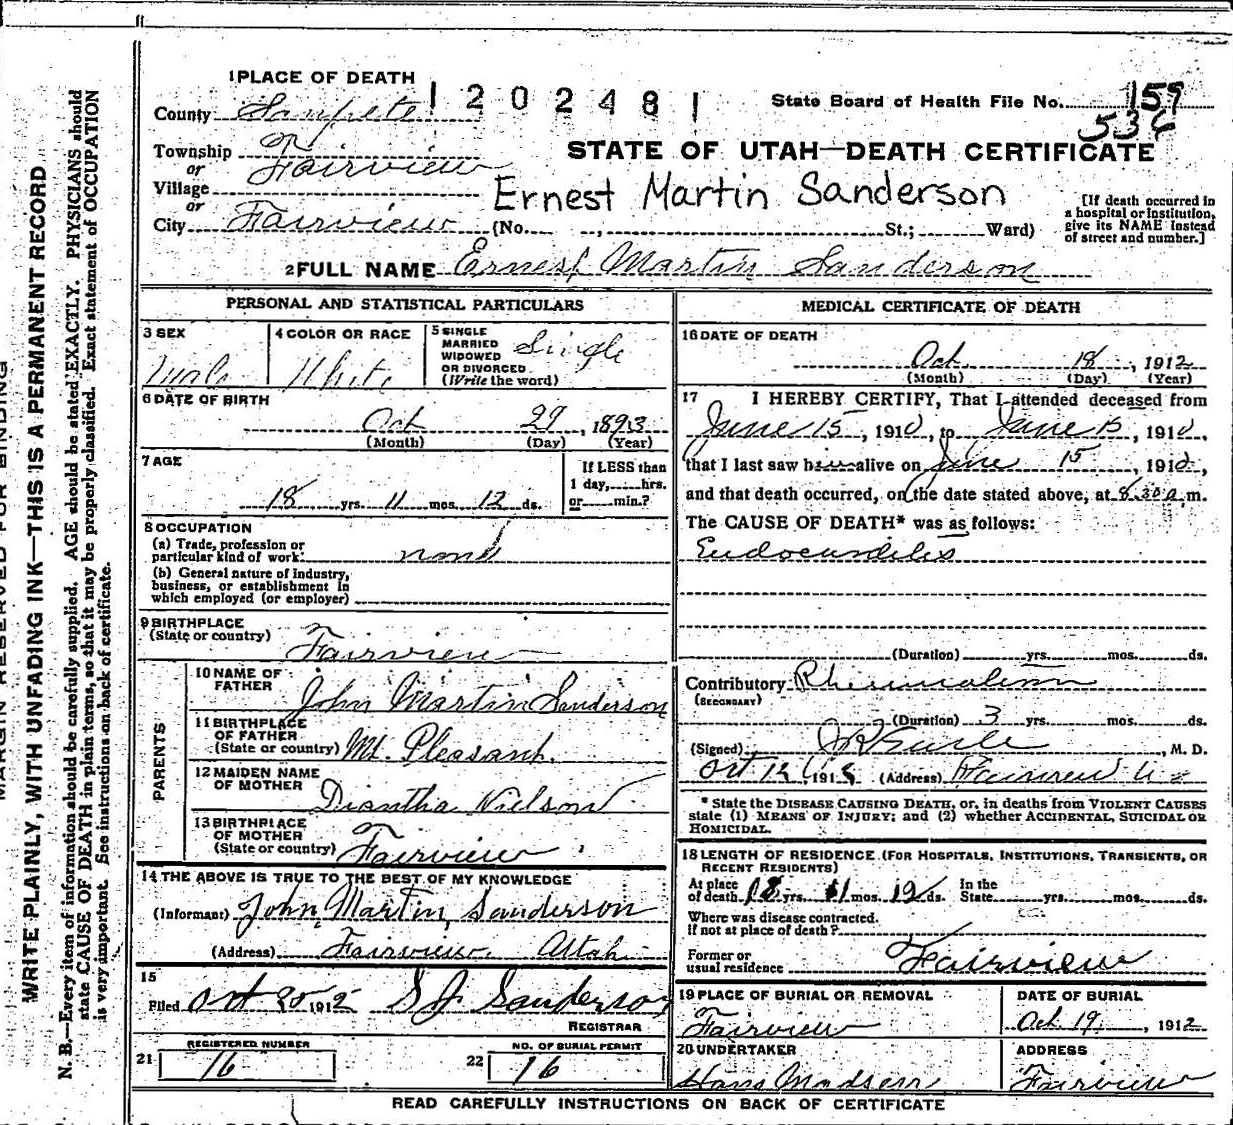 1 PLACE OF DEATH
1202481
State Board of Health File No. 159
536
County Sanpete
Township Fairview
or
Village
or
City Fairview (No. , St.; Ward)
STATE OF UTAH—DEATH CERTIFICATE
Ernest Martin Sanderson
[If death occurred in
a hospital or institution,
give its NAME instead
of street and number.]
2 FULL NAME Ernest Martin Sanderson
PERSONAL AND STATISTICAL PARTICULARS
3 SEX
Male
4 COLOR OR RACE
White
5 SINGLE
MARRIED
WIDOWED
OR DIVORCED
(Write the word)
Single
6 DATE OF BIRTH
Oct 29, 1893
(Month) (Day) (Year)
7 AGE
18 yrs. 11 mos. 12 ds.
If LESS than
1 day, hrs.
or min.?
8 OCCUPATION
(a) Trade, profession or
particular kind of work
none
(b) General nature of industry,
business, or establishment in
which employed (or employer)
9 BIRTHPLACE
(State or country)
Fairview
PARENTS
10 NAME OF
FATHER
John Martin Sanderson
11 BIRTHPLACE
OF FATHER
(State or country) Mt. Pleasant.
12 MAIDEN NAME
OF MOTHER
Diantha Nielson
13 BIRTHPLACE
OF MOTHER
(State or country)
Fairview
14 THE ABOVE IS TRUE TO THE BEST OF MY KNOWLEDGE
(Informant) John Martin Sanderson
(Address) Fairview Utah
15
Filed Oct 20 1912 S J Sanderson
REGISTRAR
21 REGISTERED NUMBER
16
22 NO. OF BURIAL PERMIT
16
MEDICAL CERTIFICATE OF DEATH
16 DATE OF DEATH
Oct 18, 1912
(Month) (Day) (Year)
17 I HEREBY CERTIFY, That I attended deceased from
June 15, 1910, to June 15, 1910,
that I last saw h alive on June 15, 1910,
and that death occurred, on the date stated above, at 8.30 a m.
The CAUSE OF DEATH* was as follows:
Endocarditis
(Duration) yrs. mos. ds.
Contributory Rheumatism
(SECONDARY)
(Duration) 3 yrs. mos. ds.
(Signed) , M. D.
Oct 191 (Address) Fairview
* State the DISEASE CAUSING DEATH, or, in deaths from VIOLENT CAUSES
state (1) MEANS OF INJURY; and (2) whether ACCIDENTAL, SUICIDAL OR
HOMICIDAL.
18 LENGTH OF RESIDENCE (FOR HOSPITALS, INSTITUTIONS, TRANSIENTS, OR
RECENT RESIDENTS)
At place
of death 18 yrs. 11 mos. 12 ds.
In the
State yrs. mos. ds.
Where was disease contracted.
If not at place of death?
Former or
usual residence Fairview
19 PLACE OF BURIAL OR REMOVAL
Fairview
DATE OF BURIAL
Oct 19, 1912
20 UNDERTAKER
Hans Madsen
ADDRESS
Fairview
READ CAREFULLY INSTRUCTIONS ON BACK OF CERTIFICATE
MARGIN RESERVED FOR BINDING
WRITE PLAINLY, WITH UNFADING INK—THIS IS A PERMANENT RECORD
N. B.—Every item of information should be carefully supplied. AGE should be stated EXACTLY. PHYSICIANS should
state CAUSE OF DEATH in plain terms, so that it may be properly classified. Exact statement of OCCUPATION
is very important. See instructions on back of certificate.